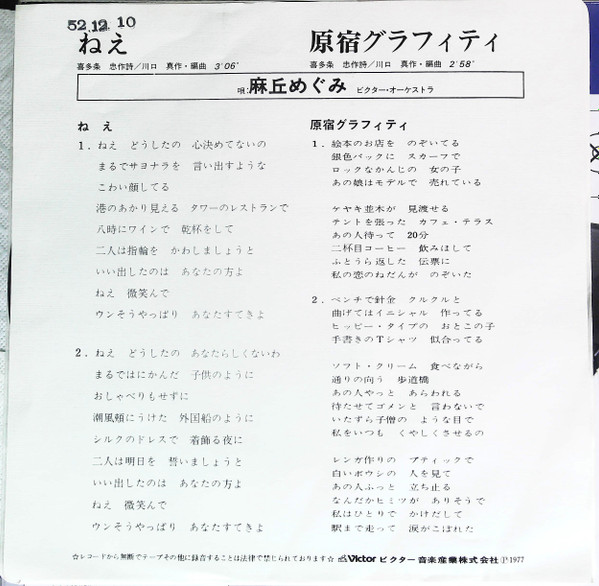 52.12.10
ねえ
喜多条　忠作詩／川口　真作・編曲　3′06″
原宿グラフィティ
喜多条　忠作詩／川口　真作・編曲　2′58″
唄：麻丘めぐみ　ビクター・オーケストラ
ねえ
1．ねえ　どうしたの　心決めてないの
まるでサヨナラを　言い出すような
こわい顔してる
港のあかり見える　タワーのレストランで
八時にワインで　乾杯をして
二人は指輪を　かわしましょうと
いい出したのは　あなたの方よ
ねえ　微笑んで
ウンそうやっぱり　あなたすてきよ
2．ねえ　どうしたの　あなたらしくないわ
まるではにかんだ　子供のように
おしゃべりもせずに
潮風頬にうけた　外国船のように
シルクのドレスで　着飾る夜に
二人は明日を　誓いましょうと
いい出したのは　あなたの方よ
ねえ　微笑んで
ウンそうやっぱり　あなたすてきよ
原宿グラフィティ
1．絵本のお店を　のぞいてる
銀色バックに　スカーフで
ロックなかんじの　女の子
あの娘はモデルで　売れている
ケヤキ並木が　見渡せる
テントを張った　カフェ・テラス
あの人待って　20分
二杯目コーヒー　飲みほして
ふとうら返した　伝票に
私の恋のねだんが　のぞいた
2．ベンチで針金　クルクルと
曲げてはイニシャル　作ってる
ヒッピー・タイプの　おとこの子
手書きのTシャツ　似合ってる
ソフト・クリーム　食べながら
通りの向う　歩道橋
あの人やっと　あらわれる
待たせてゴメンと　言わないで
いたずら子僧の　ような目で
私をいつも　くやしくさせるの
レンガ作りの　ブティックで
白いボウシの　人を見て
あの人ふっと　立ち止る
なんだかヒミツが　ありそうで
私はひとりで　かけだして
駅まで走って　涙がこぼれた
☆レコードから無断でテープその他に録音することは法律で禁じられております☆　Victor ビクター音楽産業株式会社 Ⓟ1977